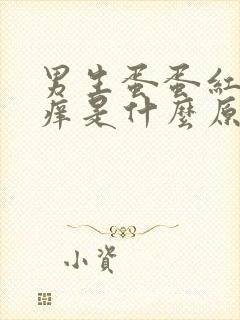 男生蛋蛋紅
痒是什麼原
小資